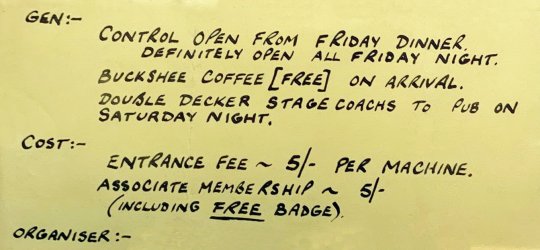 GEN:-
CONTROL OPEN FROM FRIDAY DINNER.
DEFINITELY OPEN ALL FRIDAY NIGHT.
BUCKSHEE COFFEE [FREE] ON ARRIVAL.
DOUBLE DECKER STAGE COACHS TO PUB ON
SATURDAY NIGHT.
COST:-
ENTRANCE FEE ~ 5/- PER MACHINE.
ASSOCIATE MEMBERSHIP ~ 5/-
(INCLUDING FREE BADGE).
ORGANISER:-